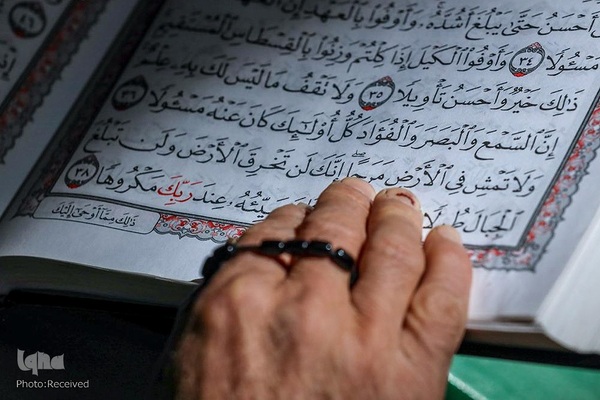 أَحْسَنُ حَتَّىٰ يَبْلُغَ أَشُدَّهُۥ ۚ وَأَوْفُوا۟ بِٱلْعَهْدِ إِنَّ
مَسْـُٔولًا ٣٤ وَأَوْفُوا۟ ٱلْكَيْلَ إِذَا كِلْتُمْ وَزِنُوا۟ بِٱلْقِسْطَاسِ ٱلْمُسْتَقِيمِ
ذَٰلِكَ خَيْرٌ وَأَحْسَنُ تَأْوِيلًا ٣٥ وَلَا تَقْفُ مَا لَيْسَ لَكَ بِهِۦ عِلْمٌ
إِنَّ ٱلسَّمْعَ وَٱلْبَصَرَ وَٱلْفُؤَادَ كُلُّ أُو۟لَٰٓئِكَ كَانَ عَنْهُ مَسْـُٔولًا ٣٦
وَلَا تَمْشِ فِى ٱلْأَرْضِ مَرَحًا ۖ إِنَّكَ لَن تَخْرِقَ ٱلْأَرْضَ وَلَن تَبْلُغَ
ٱلْجِبَالَ سَيِّئُهُۥ عِندَ رَبِّكَ مَكْرُوهًا ٣٨
ذَٰلِكَ مِمَّآ أَوْحَىٰٓ إِلَيْكَ
iqna
Photo:Received